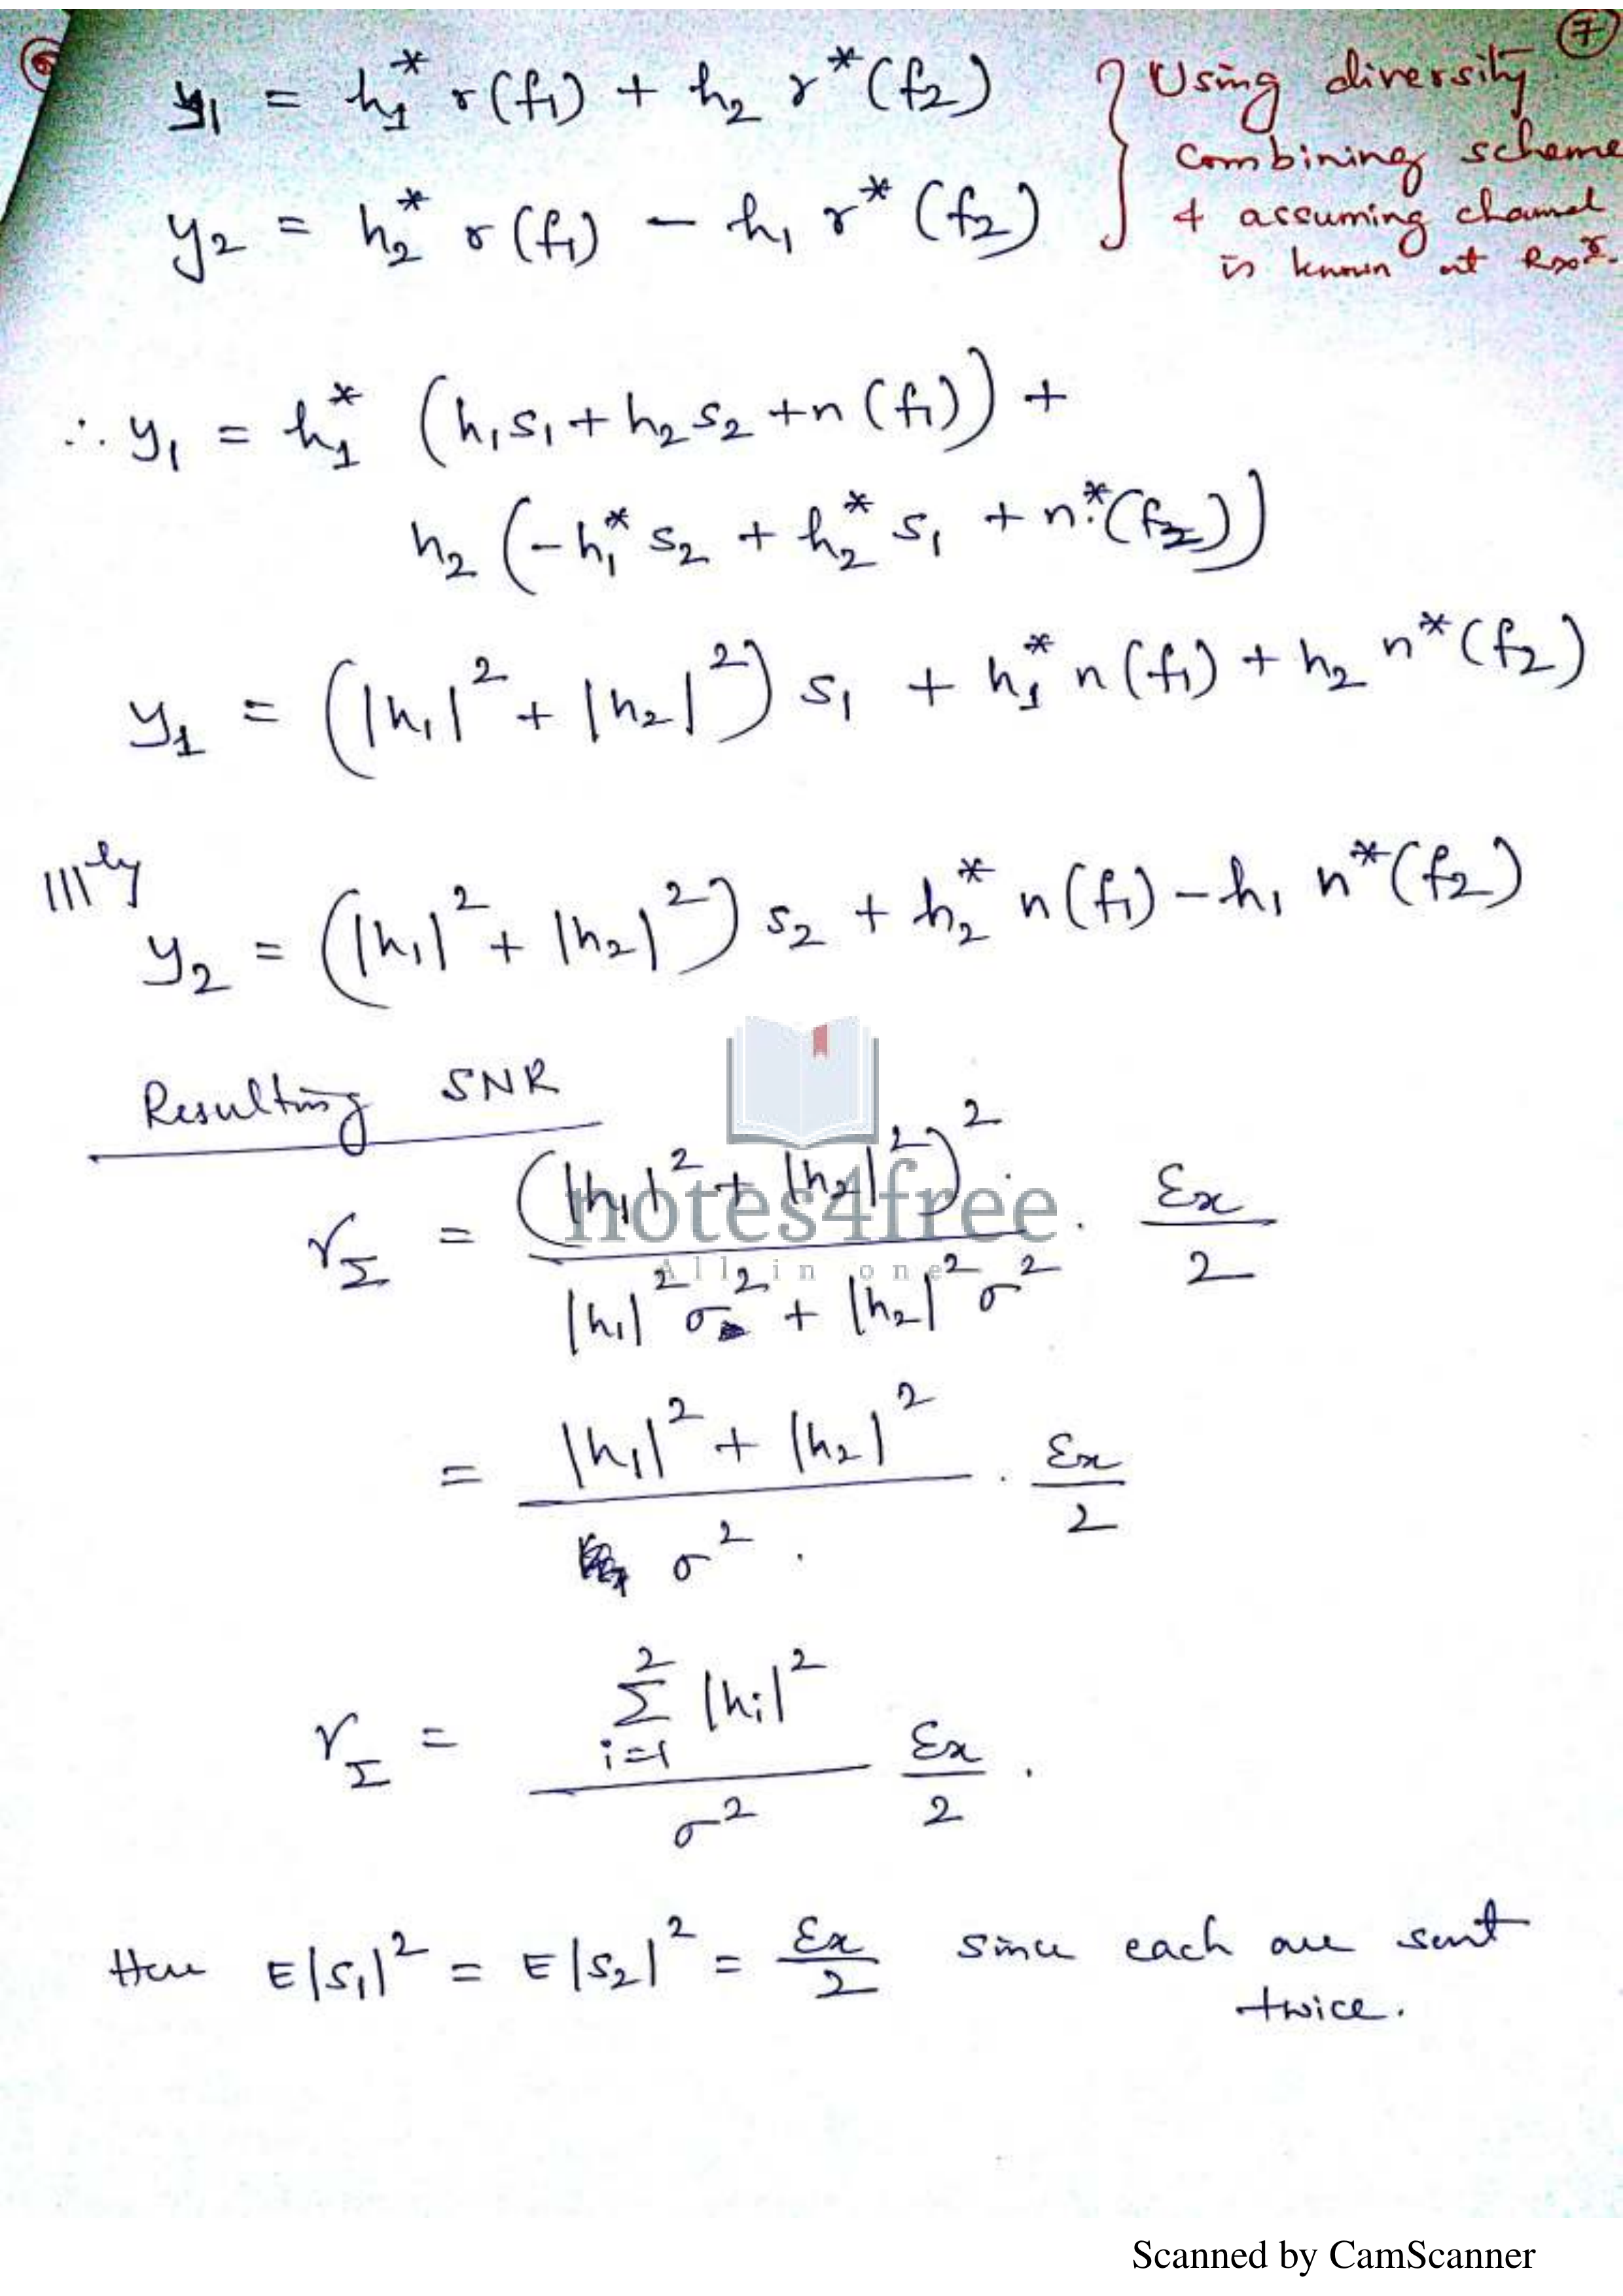 7
y₁ = h₁* r(f₁) + h₂ r*(f₂) } Using diversity
combining scheme
y₂ = h₂* r(f₁) − h₁ r*(f₂) & assuming channel
is known at Rxr.
∴ y₁ = h₁* (h₁s₁ + h₂s₂ + n(f₁)) +
h₂ (−h₁* s₂ + h₂* s₁ + n*(f₂))
y₁ = (|h₁|² + |h₂|²) s₁ + h₁* n(f₁) + h₂ n*(f₂)
|||ly
y₂ = (|h₁|² + |h₂|²) s₂ + h₂* n(f₁) − h₁ n*(f₂)
Resulting SNR
γ_Σ = (|h₁|² + |h₂|²)² / (|h₁|² σ² + |h₂|² σ²) . Ex/2
notes4free
All in one
= (|h₁|² + |h₂|²) / σ² . Ex/2
γ_Σ = (Σ_{i=1}^{2} |hᵢ|²) / σ² Ex/2 .
Here E|s₁|² = E|s₂|² = Ex/2 since each are sent
twice.
Scanned by CamScanner